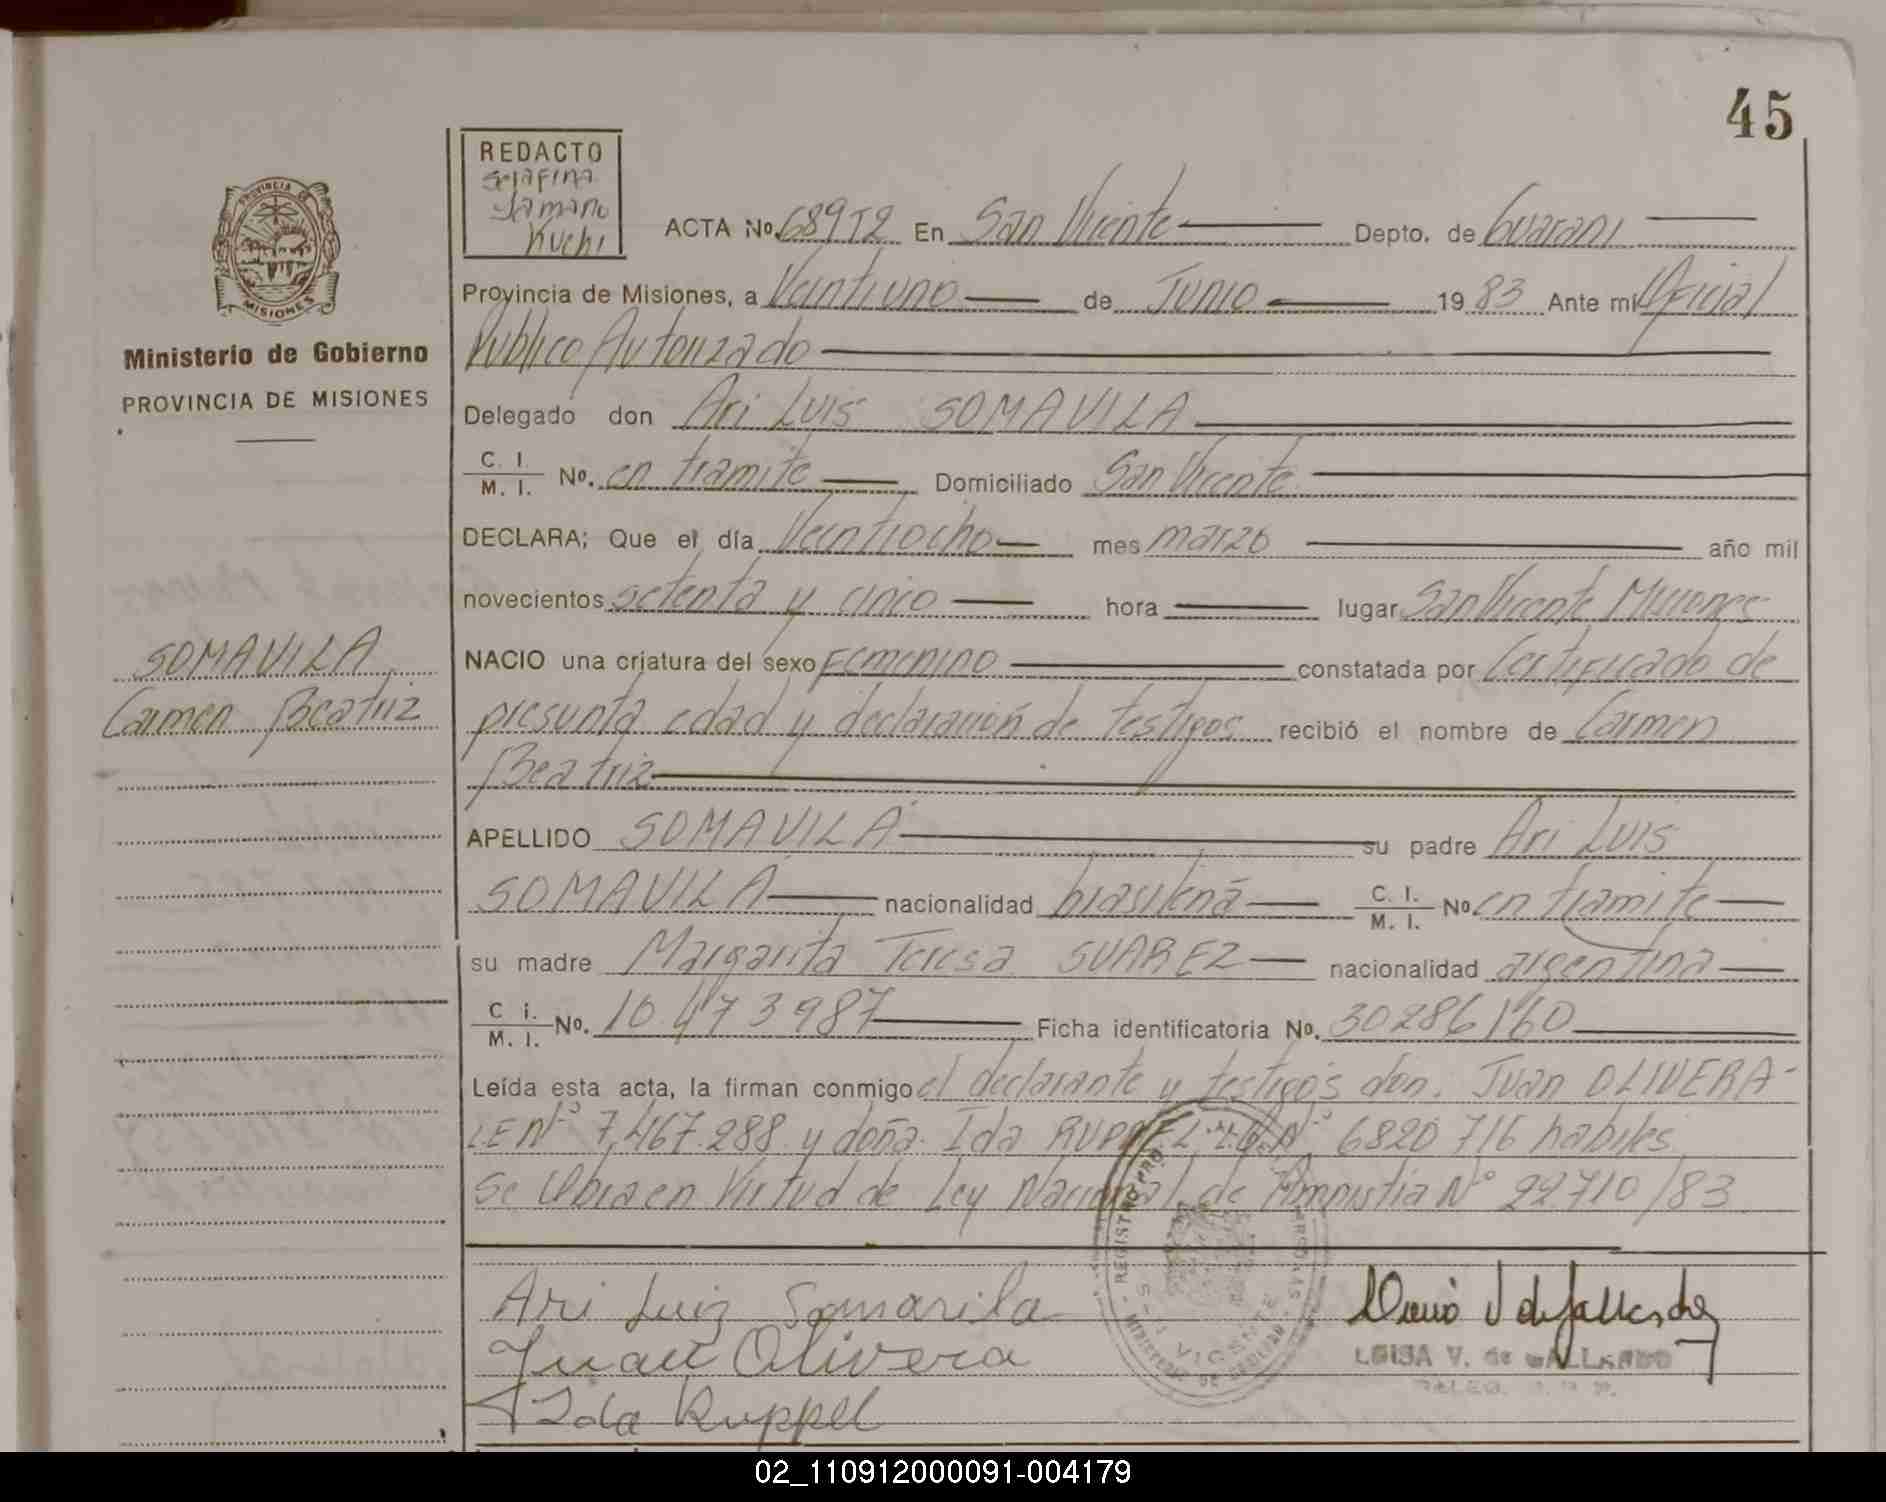 45
REDACTO
serafina
Kuchi
PROVINCIA DE
MISIONES
Ministerio de Gobierno
PROVINCIA DE MISIONES
ACTA No. 689T2 En San Vicente Depto. de Guarani
Provincia de Misiones, a Veintiuno de Junio 1983 Ante mi Oficial
Publico Autorizado
Delegado don Ari Luis SOMAVILA
C. I. / M. I. No. en tramite Domiciliado San Vicente
DECLARA; Que el día Veintiocho mes marzo año mil
novecientos setenta y cinco hora lugar San Vicente Misiones
NACIO una criatura del sexo Femenino constatada por Certificado de
presunta edad y declaración de testigos recibió el nombre de Carmen
Beatriz
SOMAVILA
Carmen Beatriz
APELLIDO SOMAVILA su padre Ari Luis
SOMAVILA nacionalidad brasileña C. I. / M. I. No en tramite
su madre Margarita Teresa SUAREZ nacionalidad argentina
C i. / M. I. No. 10.473987 Ficha identificatoria No. 30286160
Leída esta acta, la firman conmigo el declarante y testigos don. Juan OLIVERA-
LE Nº 7,467.288 y doña. Ida RUPPEL Nº 6820 716 habiles
Se labra en Virtud de Ley Nacional de Amnistia Nº 22.710/83
Ari Luiz Somavila
Juan Olivera
Ida Ruppel
LUISA V. de GALLARDO
02_110912000091-004179